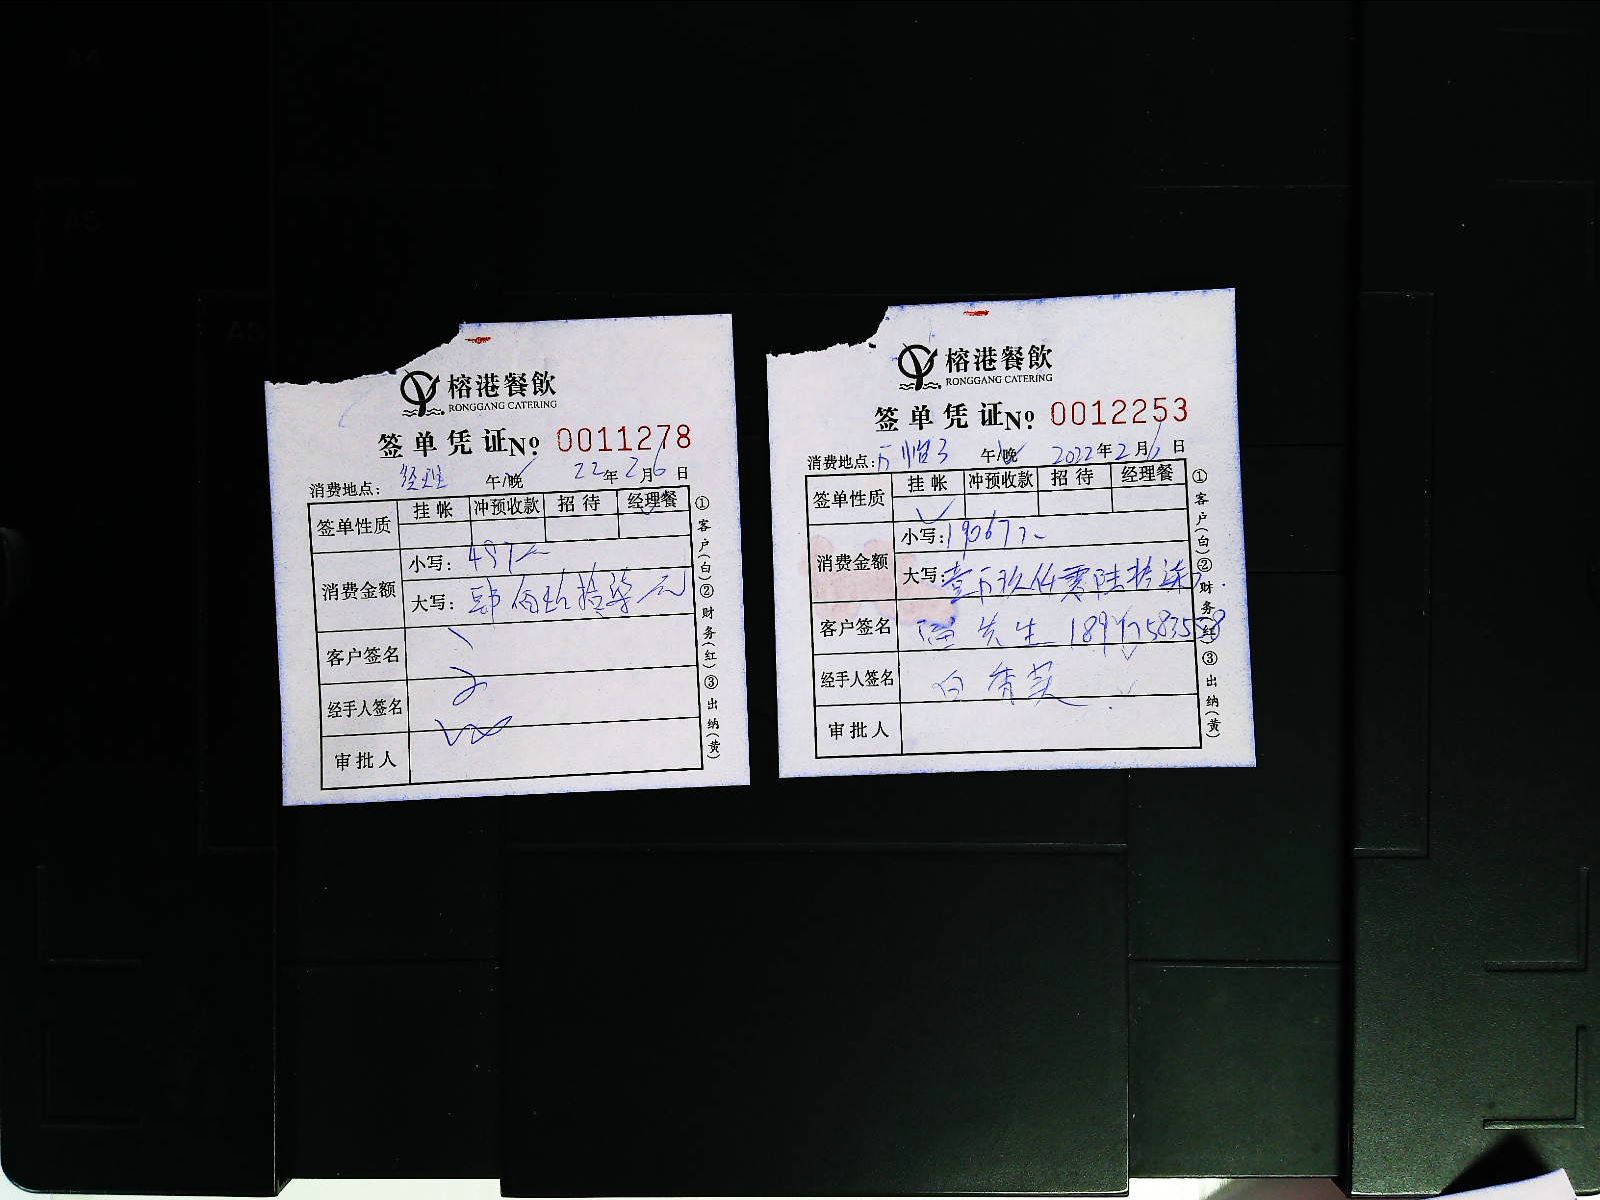 榕港餐飲
RONGGANG CATERING
签单凭证 No 0011278
消费地点: 经理 午/晚 22年2月6日
签单性质 挂帐 冲预收款 招待 经理餐
消费金额 小写: 497
大写: 肆佰玖拾柒元
客户签名
经手人签名
审批人
①客户(白)②财务(红)③出纳(黄)
榕港餐飲
RONGGANG CATERING
签单凭证 No 0012253
消费地点: 午/晚 2022年2月6日
签单性质 挂帐 冲预收款 招待 经理餐
消费金额 小写: 19067
大写: 壹万玖仟零陆拾柒
客户签名 先生
经手人签名 白
审批人
①客户(白)②财务(红)③出纳(黄)